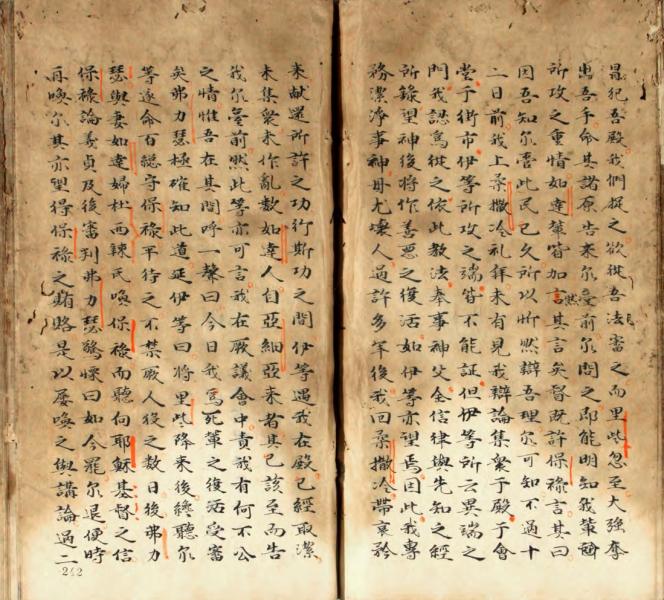 冒犯吾殿我們捉之欲從吾法審之而里些忽至大強奪
出吾手命其諸原告來尔臺前尔問之即能明知我輩
所攻之重情如達輩皆加言其言矣督既許保祿言其曰
因吾知尔此民已久所以忻然辯吾理尔可知不過十
二日前我上柔撒冷礼拜未有見我辯論集衆于殿于會
堂于街市伊等所攻之端皆不能証但伊等所云異端之
門我認爲從之依此教法奉事神父全信律與先知之經
所錄望神後將作善惡之復活如伊等亦望焉因此我專
務潔凈事神毋尤壞人過許多年後我回柔撒冷帶哀矜
來献還所許之功行斯功之間伊等遇我在殿已經取潔
未集衆未作亂數如達人自亞細亞來者其已該至而告
我尔臺前然此等亦可言我在厥議會中責我有何不公
之情惟吾在其間呼一聲曰今日我爲死輩之復活受審
矣弗力瑟極確知此道延伊等曰將里些降來後終聽尔
等遂命百緫守保祿平待之不禁厥人役之數日後弗力
瑟與妻如達婦杜西辣氏喚保祿而聽向耶穌基督之信
保祿論義貞及後審判弗力瑟驚慄曰如今罷尔退便時
再喚尔其亦望得保祿之賄賂是以屡喚之與講論過二
242